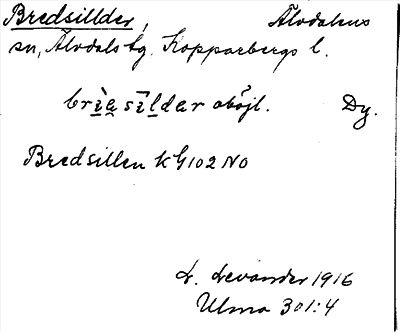 Bredsillder, Älvdalens
sn, Älvdals tg. Kopparbergs l.
brìe̯ sīldar oböjl. Dy.
Bredsillen k G102 NO
L. Levander 1916
Ulma 301:4